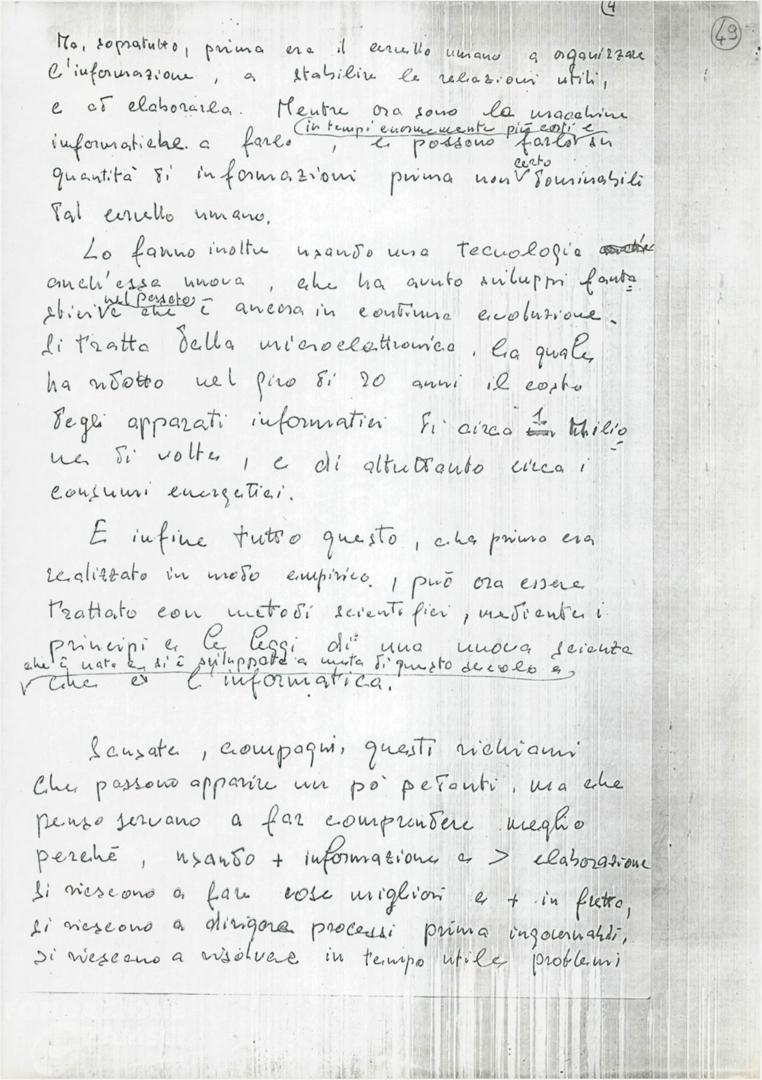 4
49
Ma, sopratutto, prima era il cervello umano a organizzare
l'informazione, a stabilire le relazioni utili,
e ad elaborarla. Mentre ora sono le macchine
in tempi enormemente più corti e
informatiche a farlo, e possono farlo su
certo
quantità di informazioni prima non dominabili
dal cervello umano.
Lo fanno inoltre usando una tecnologia
anch'essa nuova, che ha avuto sviluppi fanta
nel passato
stici che è ancora in continua evoluzione.
Si tratta della microelettronica, la quale
ha ridotto nel giro di 20 anni il costo
degli apparati informatici di circa 1 Milio
ne di volte, e di altrettanto circa i
consumi energetici.
E infine tutto questo, che prima era
realizzato in modo empirico, può ora essere
trattato con metodi scientifici, mediante i
principi e le leggi di una nuova scienza
che è nata e si è sviluppata a metà di questo secolo e
che è l'informatica.
Scusate, compagni, questi richiami
che possono apparire un pò pedanti, ma che
penso servano a far comprendere meglio
perchè, usando + informazione e > elaborazione
si riescono a fare cose migliori e + in fretta,
si riescono a dirigere processi prima ingovernabili,
si riescono a risolvere in tempo utile problemi